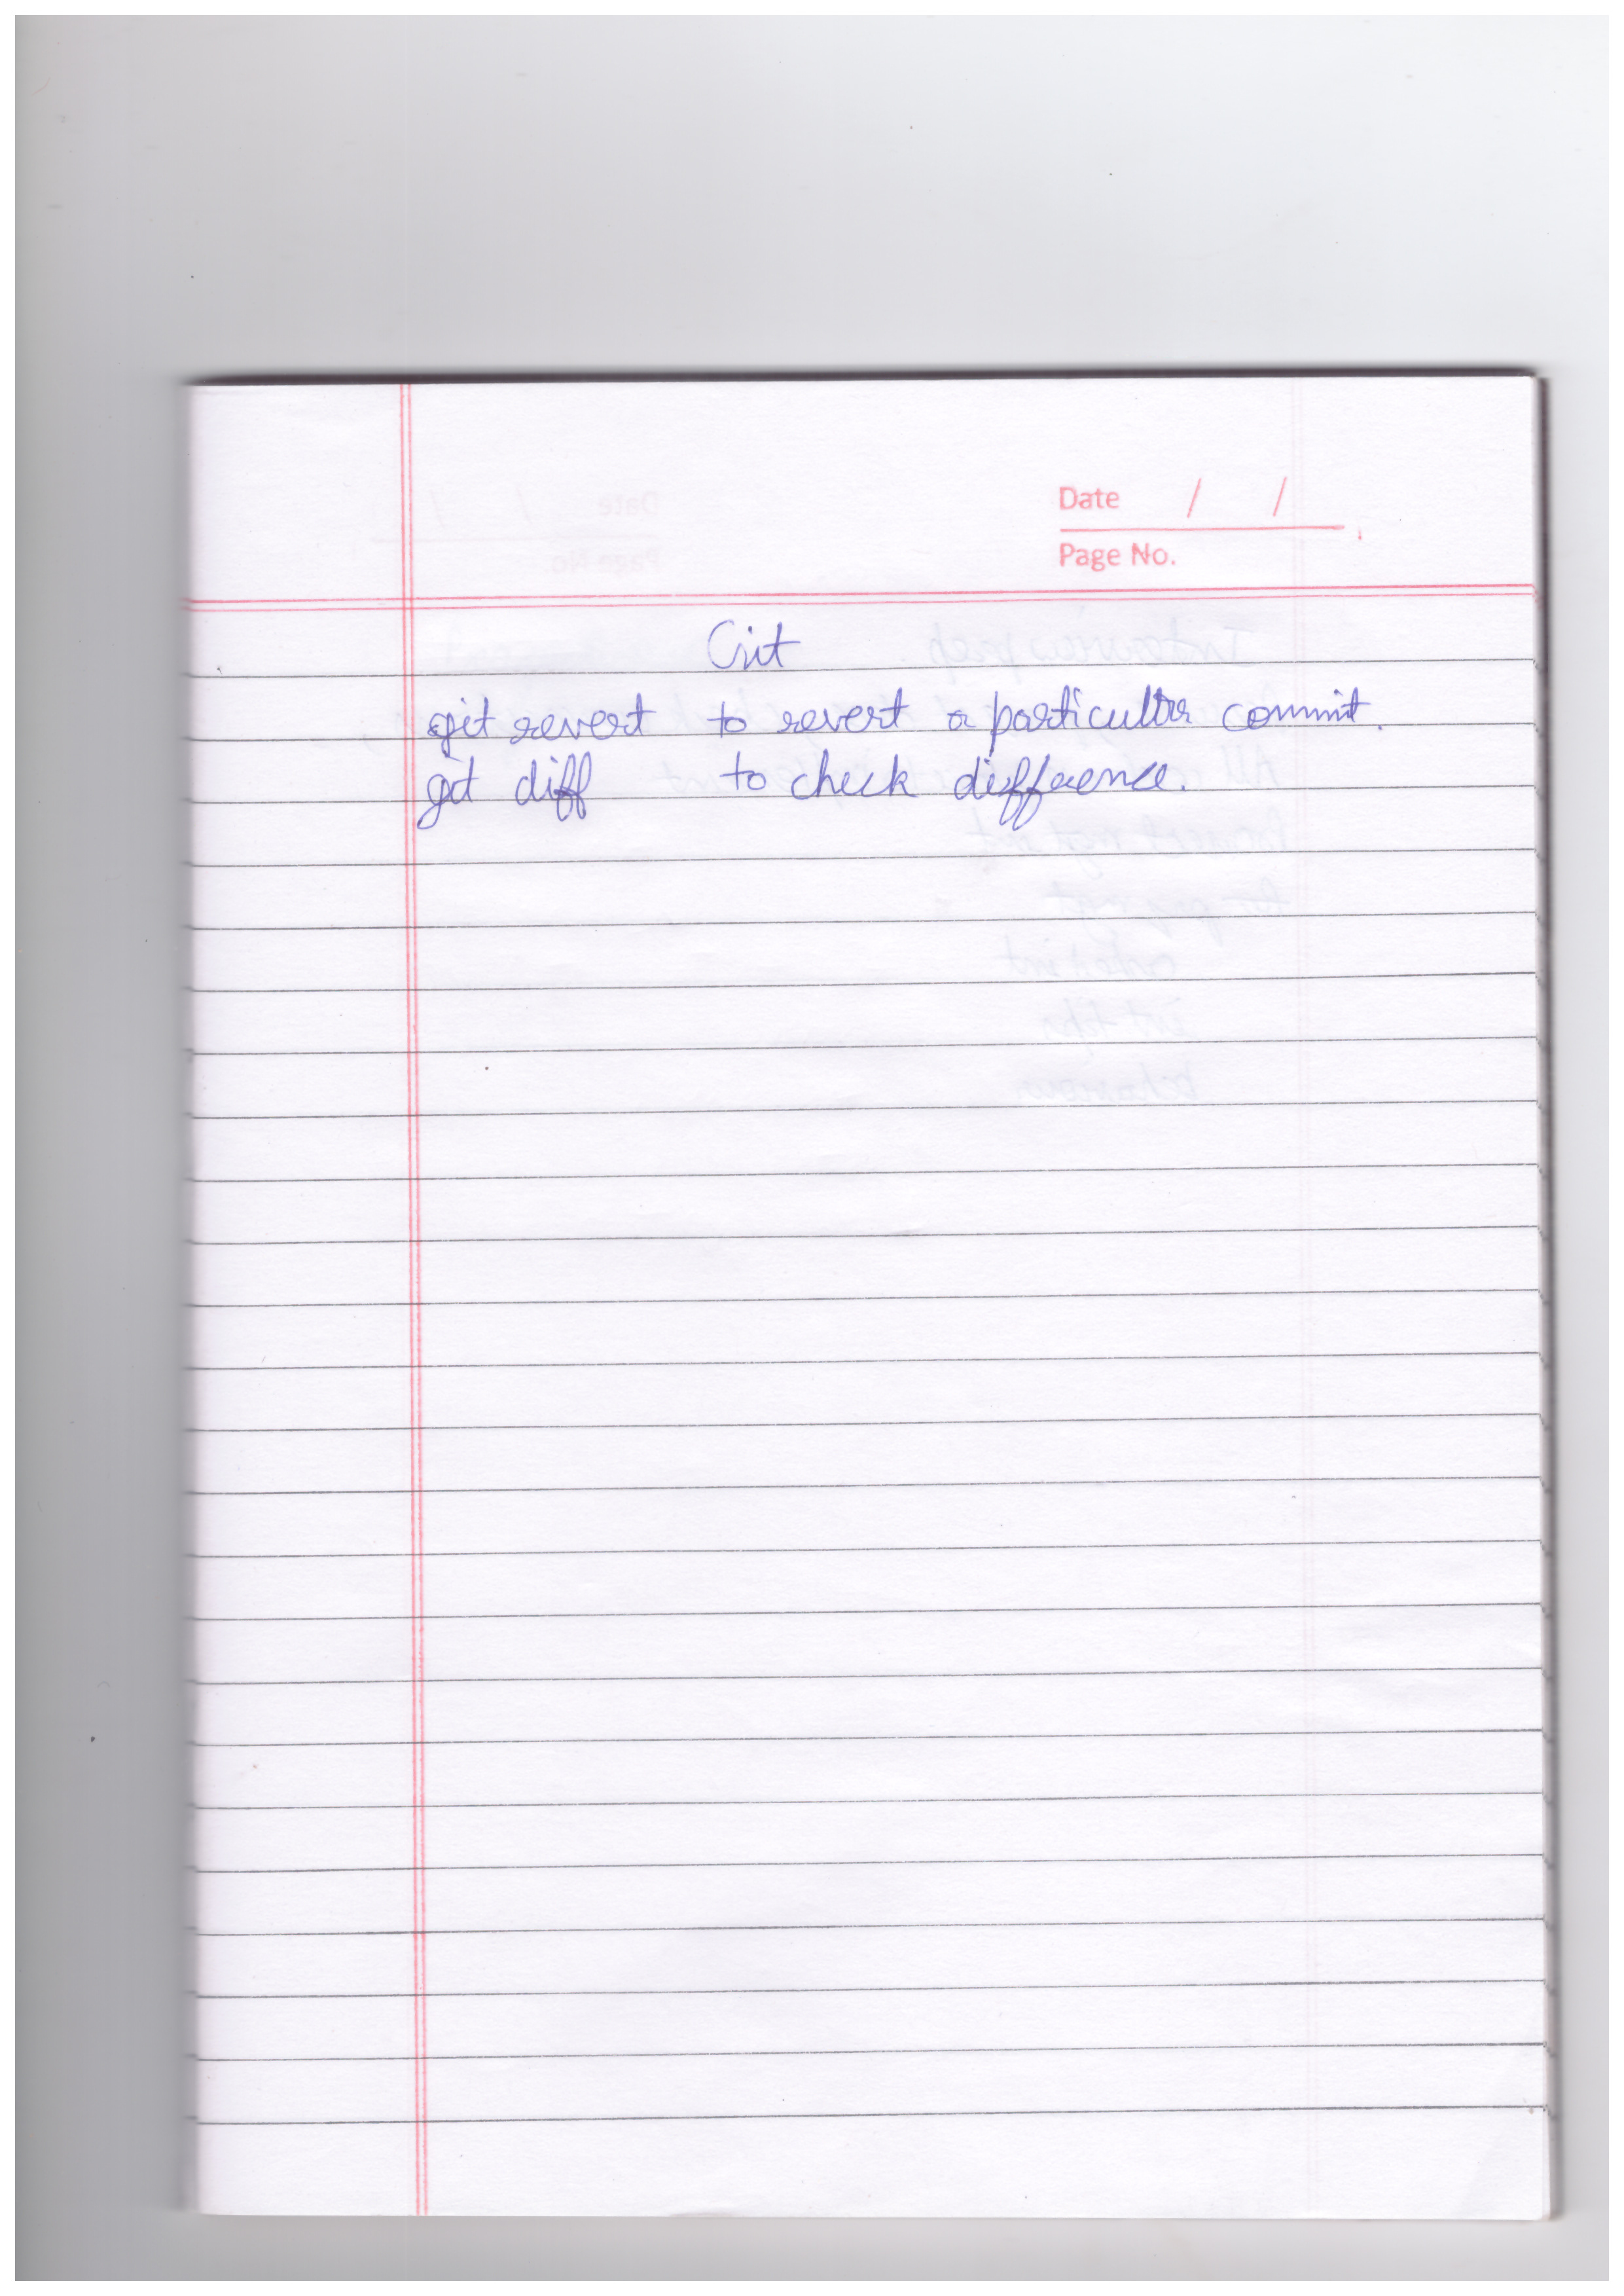 Date / /
Page No.
Git
git revert to revert a particular commit.
git diff to check difference.